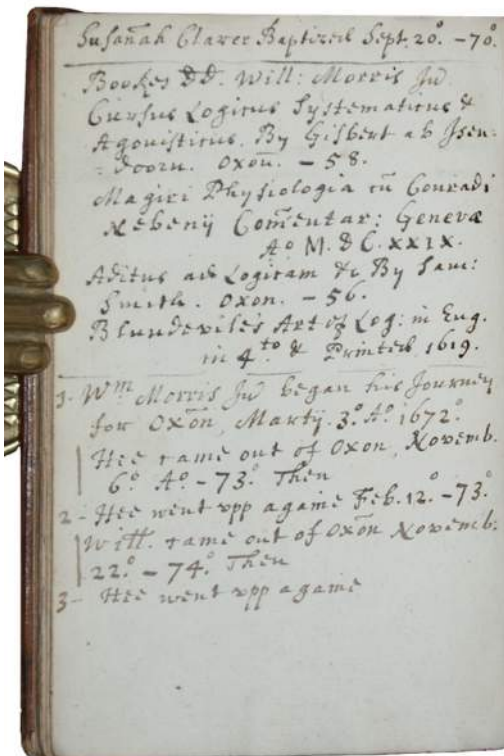 Susan̄ah Claver Baptized Sept. 20.° -70.°
Bookes dd. Will: Morris Jū.
Cursus Logicus Systematicus &
Agonisticus. By Gilbert ab Isen:
-doorn. Oxon̄. - 58.
Magiri Physiologia cū Conradi
Nebenij Com̄entar: Genevæ
A.° M. DC. XXIX.
Aditus ad Logicam &c By Sam:
Smith. Oxon. - 56.
Blundevile's Art of Log: in Eng.
in 4.to & Printed 1619.
1- Wm Morris Jū began his Journey
for Oxon̄, Martij. 3.° A.° 1672.°
Hee came out of Oxon, Novemb.
6.° A.° - 73.° Then
2- Hee went vpp againe Feb. 12.° - 73.°
Will. came out of Oxon̄ Novemb:
22.° - 74.° Then
3- Hee went vpp againe